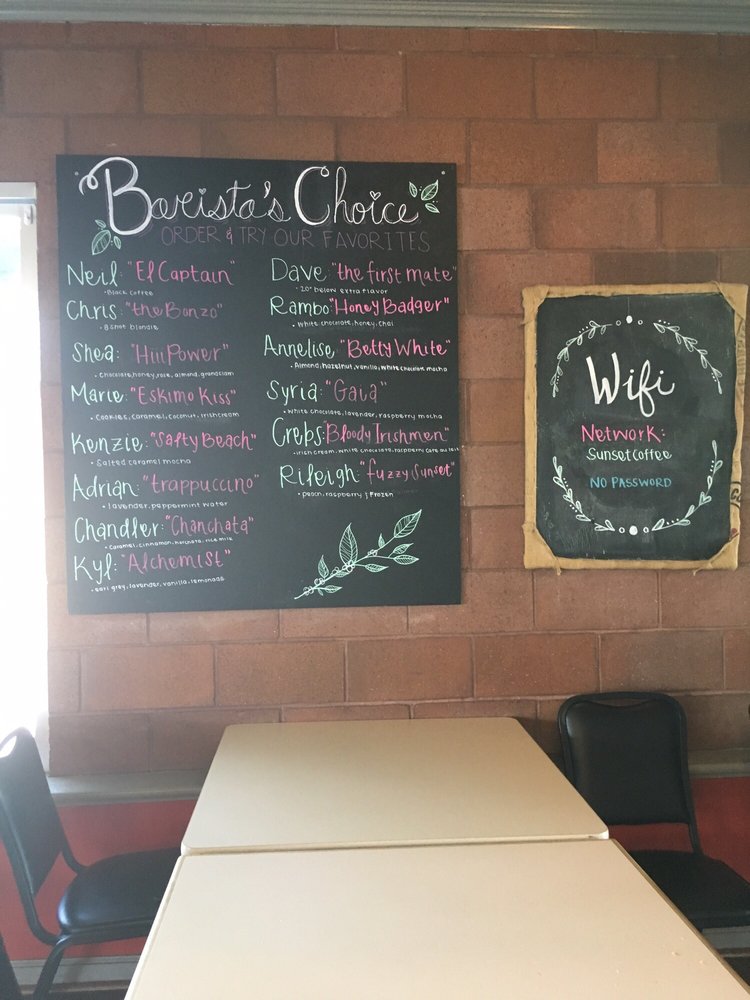 Barista's Choice
ORDER & TRY OUR FAVORITES
Neil: "El Captain"
• Black coffee
Chris: "the Bonzo"
• 8 shot blondie
Shea: "Hill Power"
• Chocolate, honey, rose, almond, grandslam
Marie: "Eskimo Kiss"
• Cookies, caramel, coconut, irish cream
Kenzie: "Salty Beach"
• Salted caramel mocha
Adrian: "trappuccino"
• lavender, peppermint water
Chandler: "Chanchata"
• Caramel, cinnamon, horchata, rice milk
Kyl: "Alchemist"
• earl grey, lavender, vanilla, lemonade
Dave: "the first mate"
• 20° below extra flavor
Rambo: "Honey Badger"
• White chocolate, honey, chai
Annelise: "Betty White"
• Almond, hazelnut, vanilla, white chocolate mocha
Syria: "Gaia"
• White chocolate, lavender, raspberry mocha
Crebs: "Bloody Irishmen"
• irish cream, white chocolate, raspberry cafe au lait
Rileigh: "fuzzy Sunset"
• peach, raspberry, frozen
Wifi
Network:
Sunsetcoffee
NO PASSWORD